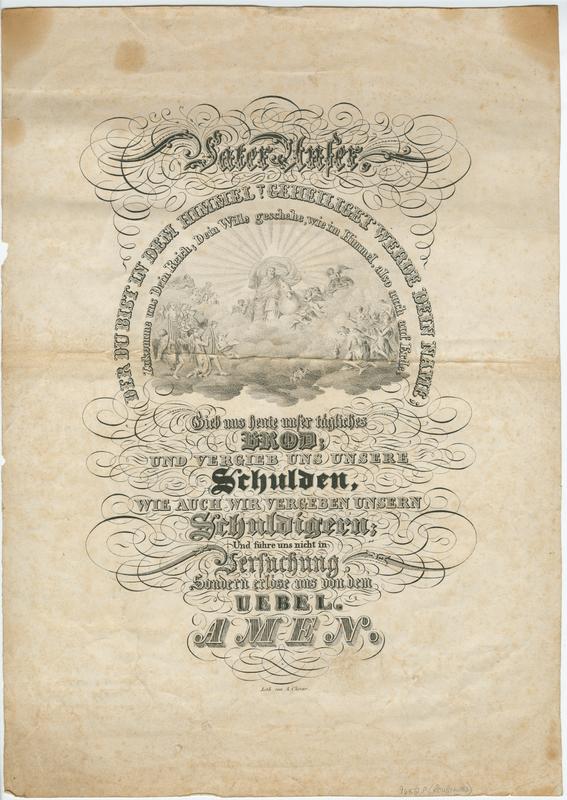 Vater Unser,
DER DU BIST IN DEM HIMMEL! GEHEILIGET WERDE DEIN NAME;
Zukomme uns Dein Reich; Dein Wille geschehe, wie im Himmel, also auch auf Erde;
Gieb uns heute unser tägliches
BROD;
UND VERGIEB UNS UNSERE
Schulden,
WIE AUCH WIR VERGEBEN UNSERN
Schuldigern;
Und führe uns nicht in
Versuchung
Sondern erlöse uns von dem
UEBEL.
AMEN.
Lith. von A.